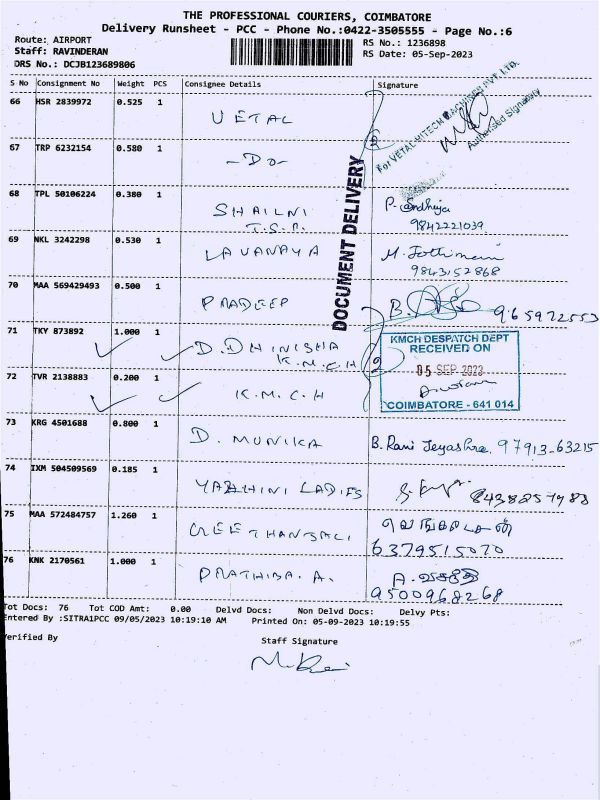 THE PROFESSIONAL COURIERS, COIMBATORE
Delivery Runsheet - PCC - Phone No.:0422-3505555 - Page No.:6
Route: AIRPORT
RS No.: 1236898
Staff: RAVINDERAN
RS Date: 05-Sep-2023
DRS No.: DCJB123689806
S No Consignment No Weight PCS Consignee Details Signature
66 HSR 2839972 0.525 1 VETAL
For VETAL HITECH MACHINES PVT. LTD.
Authorised Signatory
67 TRP 6232154 0.580 1 -DO-
2
DOCUMENT DELIVERY
68 TPL 50106224 0.380 1 SHAILNI P. Sandhiya
T.S.A. 9842221039
69 NKL 3242298 0.530 1 LAVANAYA M. Jothimani
9843152868
70 MAA 569429493 0.500 1 PRADEEP B.
71 TKY 873892 1.000 1 D. DHINISHA
K.M.C.H
2
KMCH DESPATCH DEPT
RECEIVED ON
05 SEP 2023
COIMBATORE - 641 014
72 TVR 2138883 0.200 1 K.M.C.H
73 KRG 4501688 0.800 1 D. MUNIKA B. Rani Jeyashree 97913-63215
74 IXM 504509569 0.185 1 YAZHINI LADIES 8438257988
75 MAA 572484757 1.260 1 GEETHANJALI வெங்கடேசன்
6379515070
76 KNK 2170561 1.000 1 PRATHIBA. A. A. வசந்தி
9500968268
Tot Docs: 76 Tot COD Amt: 0.00 Delvd Docs: Non Delvd Docs: Delvy Pts:
Entered By :SITRA1PCC 09/05/2023 10:19:10 AM Printed On: 05-09-2023 10:19:55
Verified By Staff Signature